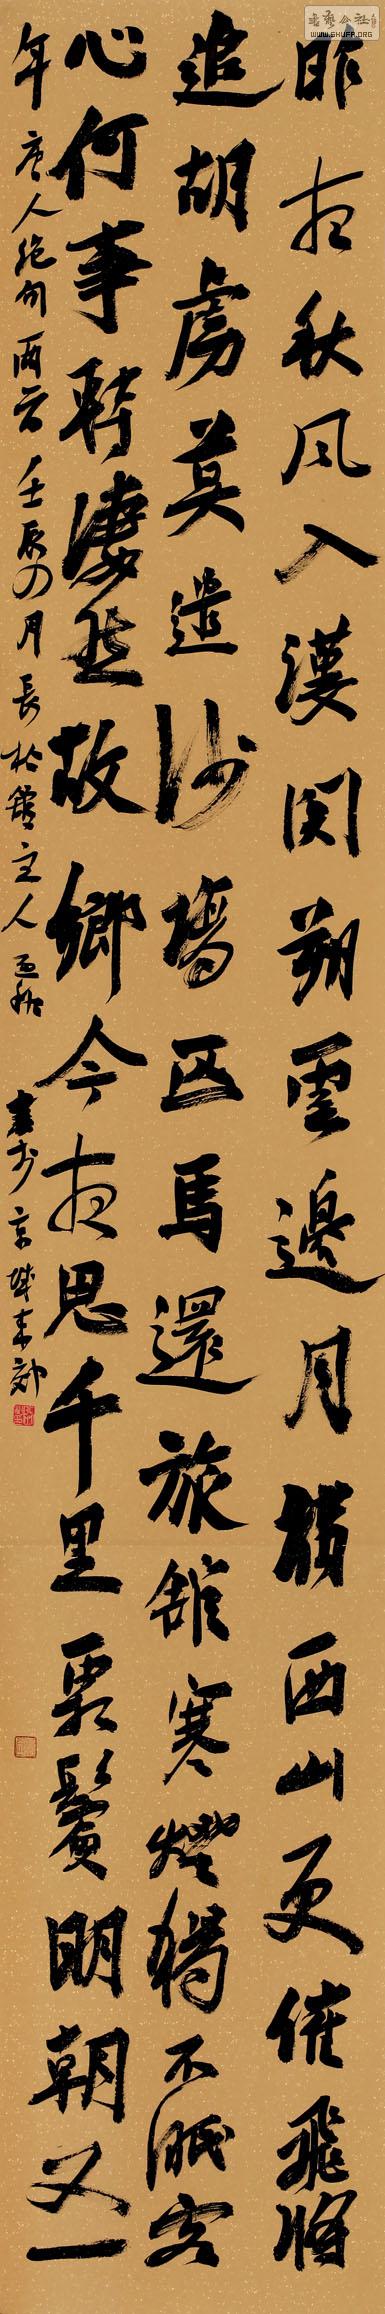 书艺公社
WWW.SHUFA.ORG
昨夜秋風入漢関朔雲邊月滿西山更催飛將
追胡虜莫遣沙場匹馬還旅舘寒燈獨不眠客
心何事轉淒然故鄉今夜思千里霜鬢明朝又一
年 唐人絶句兩首 壬辰四月 長主人 書於京城東郊